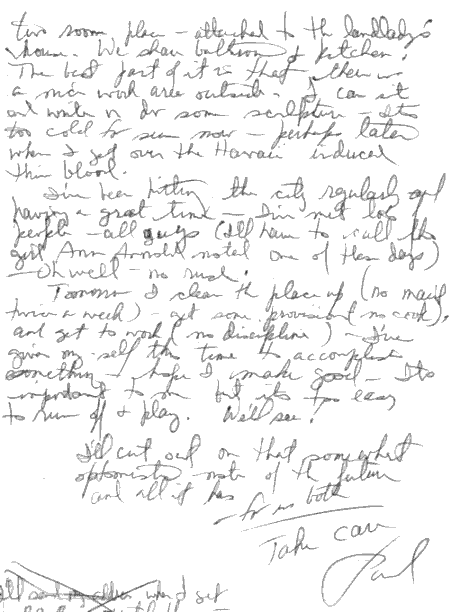 two room place - attached to the landlady's
house. We share bathroom & kitchen.
The best part of it is that there is
a nice work area outside. I can sit
and write or do some sculpture - It's
too cold for sun now - perhaps later
when I get over the Hawaii induced
thin blood.
I've been hitting the city regularly and
having a great time - I've met lots
people - all guys (I'll have to call the
girl Ann Arnold noted one of these days)
- Oh well - no rush!
Tomorrow I clean the place up (no maid
twice a week) - get some provisions (no cook),
and get to work (no discipline) - I've
given my self this time to accomplish
something - hope I make good - It's
important to me but it's too easy
to run off & play. We'll see!
I'll cut out on that somewhat
optimistic note of the future
and all it has
- for us both
Take care
Paul
I'll send when I get